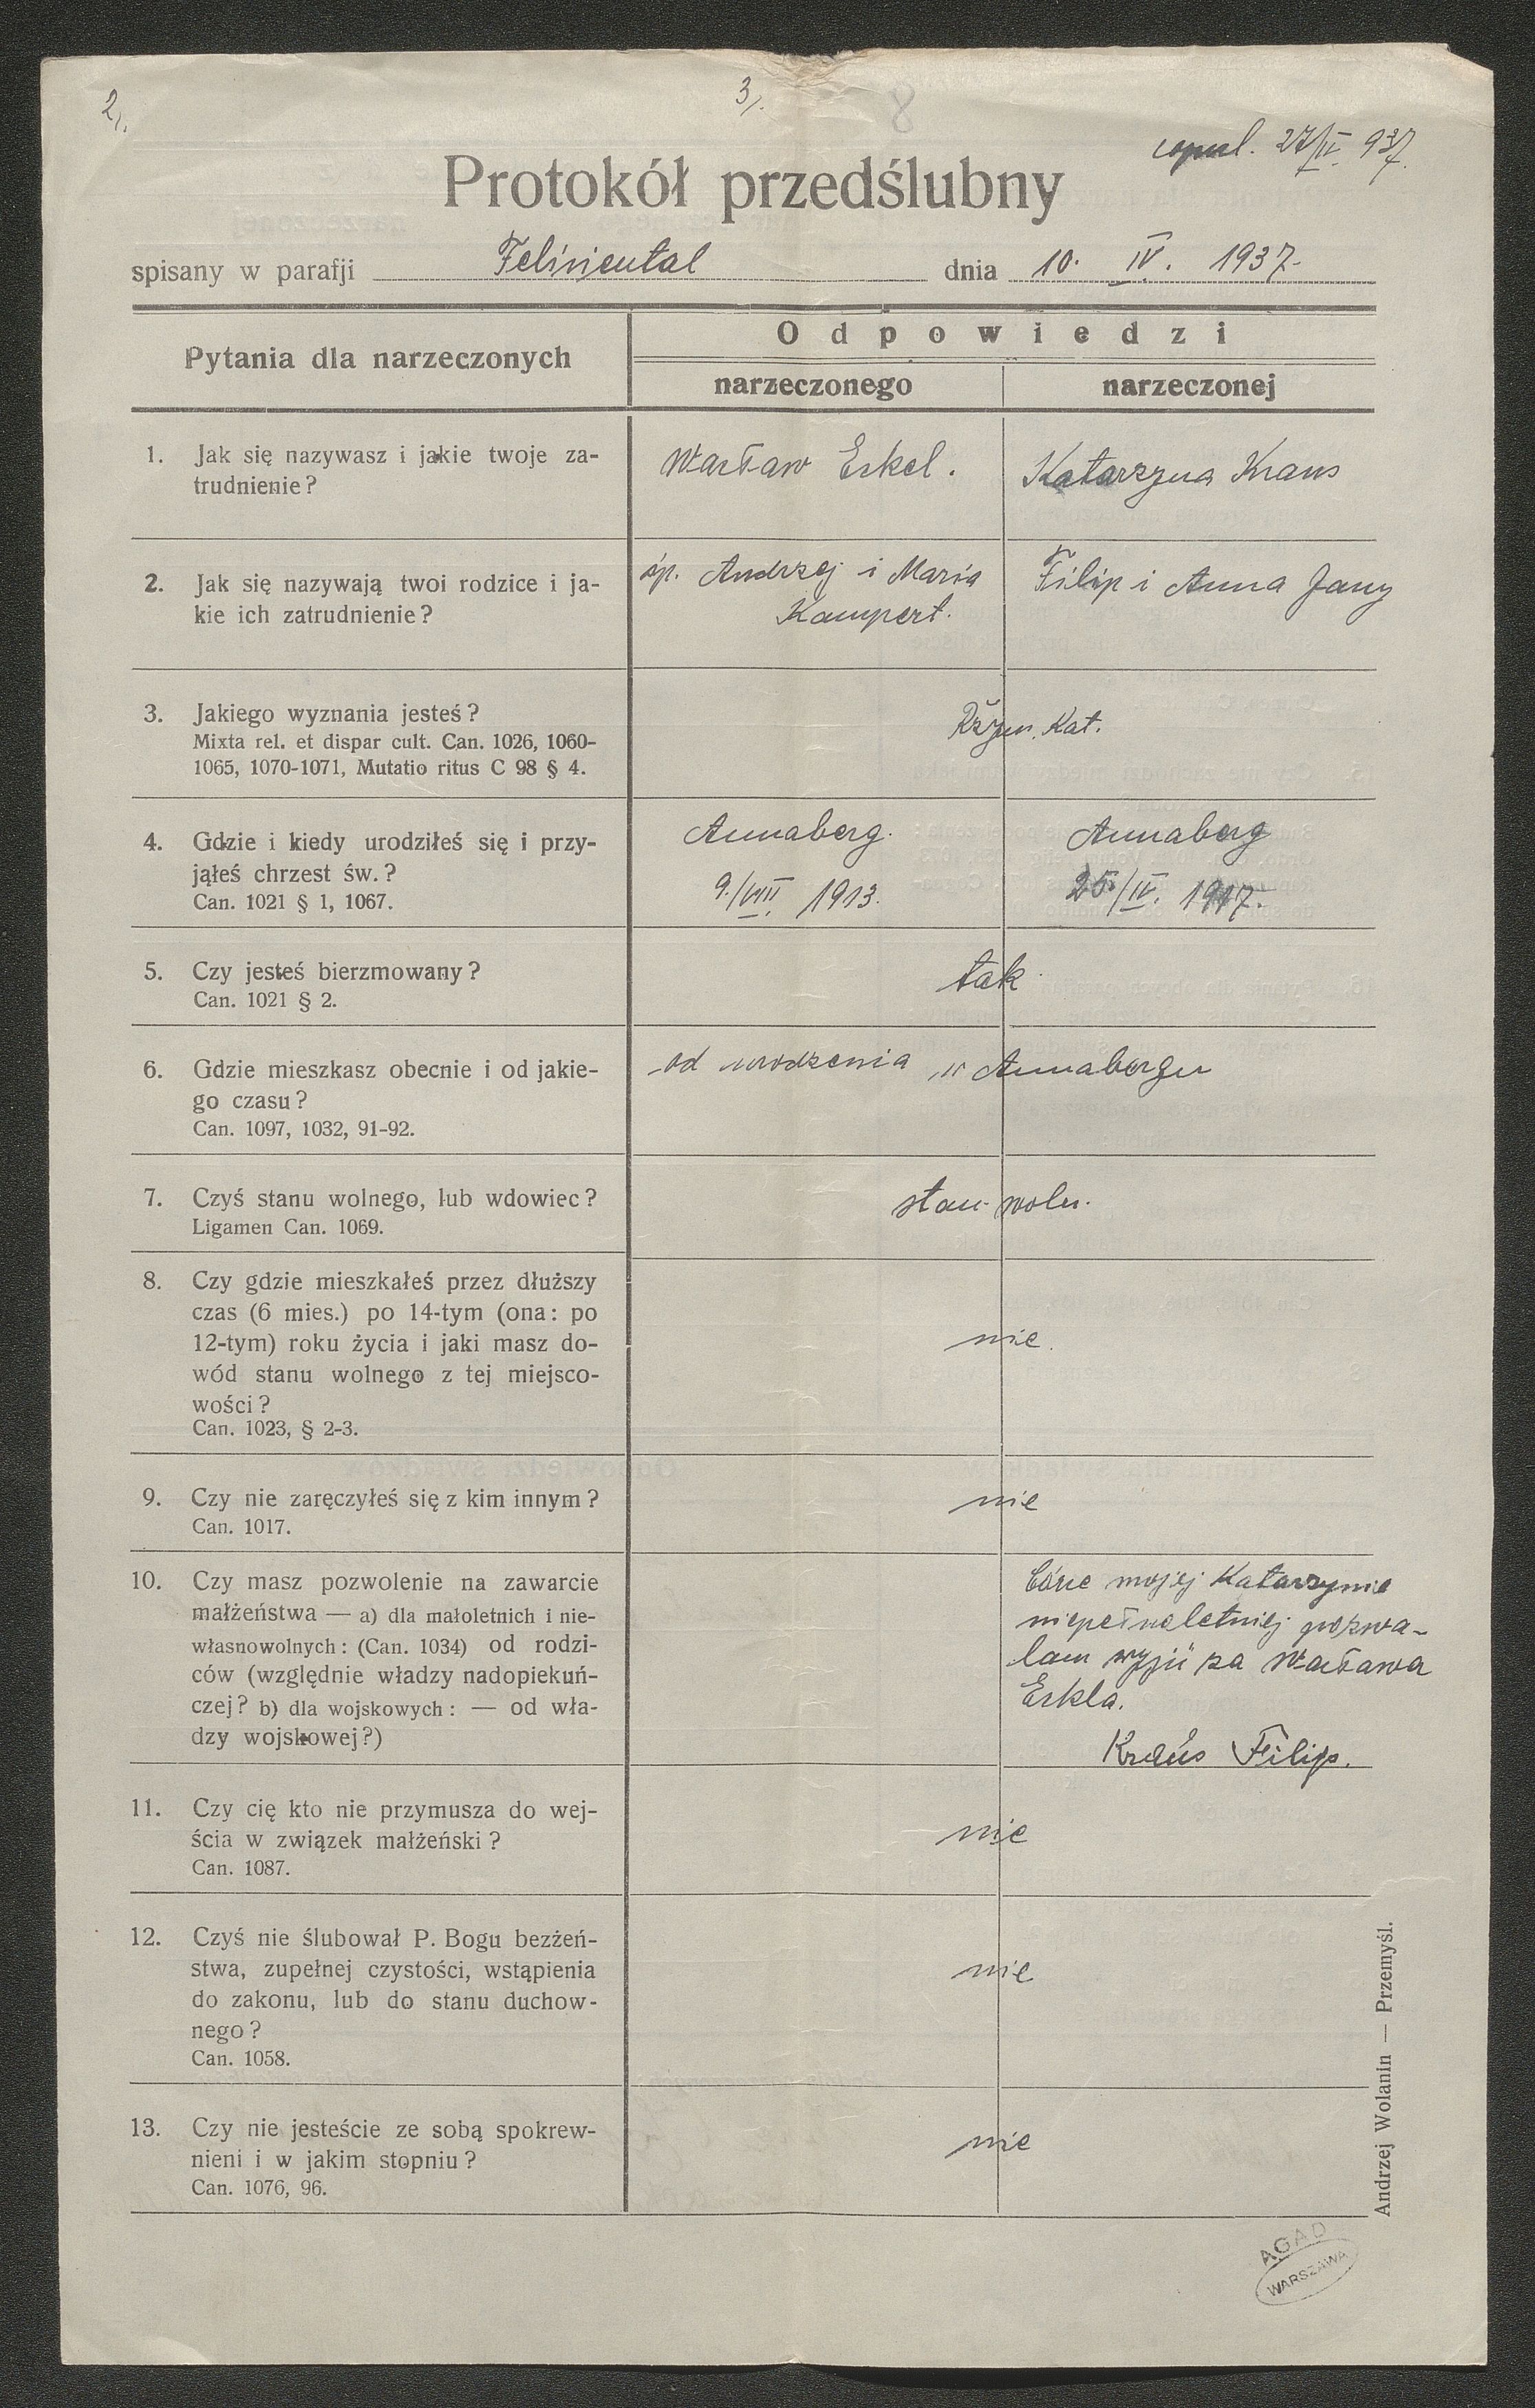 2/.
3/.
8
copul. 27/IV 937.
Protokół przedślubny
spisany w parafji Feliniental dnia 10. IV. 1937.
Pytania dla narzeczonych
Odpowiedzi
narzeczonego
narzeczonej
1. Jak się nazywasz i jakie twoje za-
trudnienie?
Wacław Erkel.
Katarzyna Kraus
2. Jak się nazywają twoi rodzice i ja-
kie ich zatrudnienie?
śp. Andrzej i Maria
Kampert.
Filip i Anna Jany
3. Jakiego wyznania jesteś?
Mixta rel. et dispar cult. Can. 1026, 1060-
1065, 1070-1071, Mutatio ritus C 98 § 4.
Rzym. Kat.
4. Gdzie i kiedy urodziłeś się i przy-
jąłeś chrzest św.?
Can. 1021 § 1, 1067.
Annaberg.
9./VIII. 1913.
Annaberg
25/IV. 1917.
5. Czy jesteś bierzmowany?
Can. 1021 § 2.
tak
6. Gdzie mieszkasz obecnie i od jakie-
go czasu?
Can. 1097, 1032, 91-92.
od urodzenia w Annabergu
7. Czyś stanu wolnego, lub wdowiec?
Ligamen Can. 1069.
stan woln.
8. Czy gdzie mieszkałeś przez dłuższy
czas (6 mies.) po 14-tym (ona: po
12-tym) roku życia i jaki masz do-
wód stanu wolnego z tej miejsco-
wości?
Can. 1023, § 2-3.
nie.
9. Czy nie zaręczyłeś się z kim innym?
Can. 1017.
nie
10. Czy masz pozwolenie na zawarcie
małżeństwa — a) dla małoletnich i nie-
własnowolnych: (Can. 1034) od rodzi-
ców (względnie władzy nadopiekuń-
czej? b) dla wojskowych: — od wła-
dzy wojskowej?)
Córce mojej Katarzynie
niepełnoletniej pozwa-
lam wyjść za Wacława
Erkla.
Kraus Filip.
11. Czy cię kto nie przymusza do wej-
ścia w związek małżeński?
Can. 1087.
nie
12. Czyś nie ślubował P. Bogu bezżeń-
stwa, zupełnej czystości, wstąpienia
do zakonu, lub do stanu duchow-
nego?
Can. 1058.
nie
13. Czy nie jesteście ze sobą spokrew-
nieni i w jakim stopniu?
Can. 1076, 96.
nie
Andrzej Wolanin — Przemyśl.
AGAD
WARSZAWA